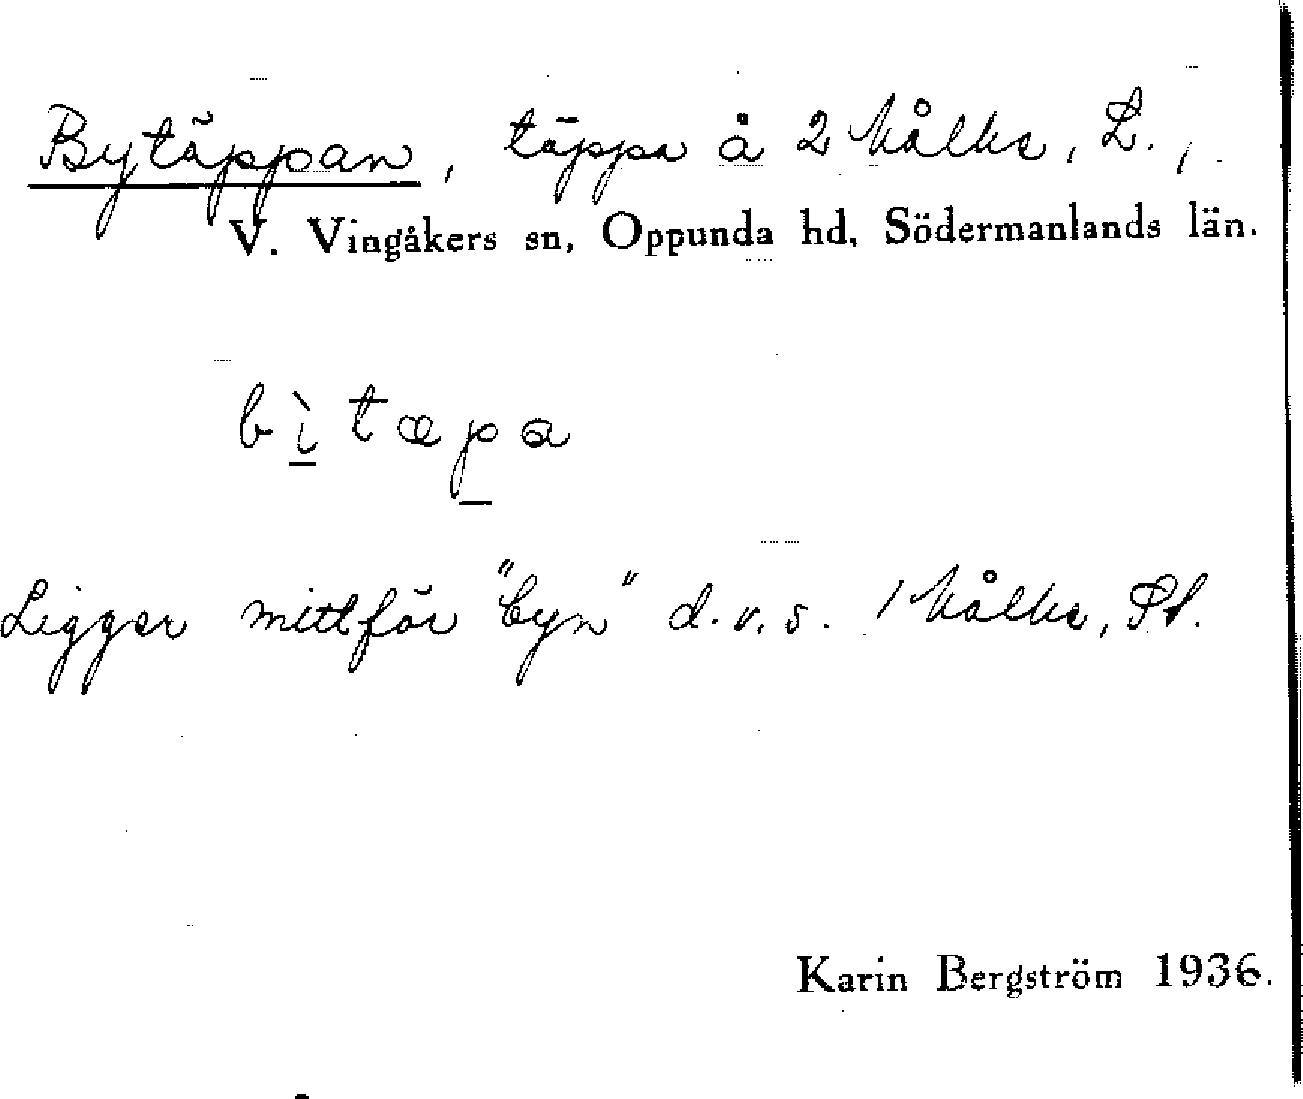 Bytäppan, täppa å 2 Kålke, L.,
V. Vingåkers sn, Oppunda hd, Södermanlands län.
bìtæpa
Ligger mittför "byn" d.v.s. 1 Kålke, St.
Karin Bergström 1936.